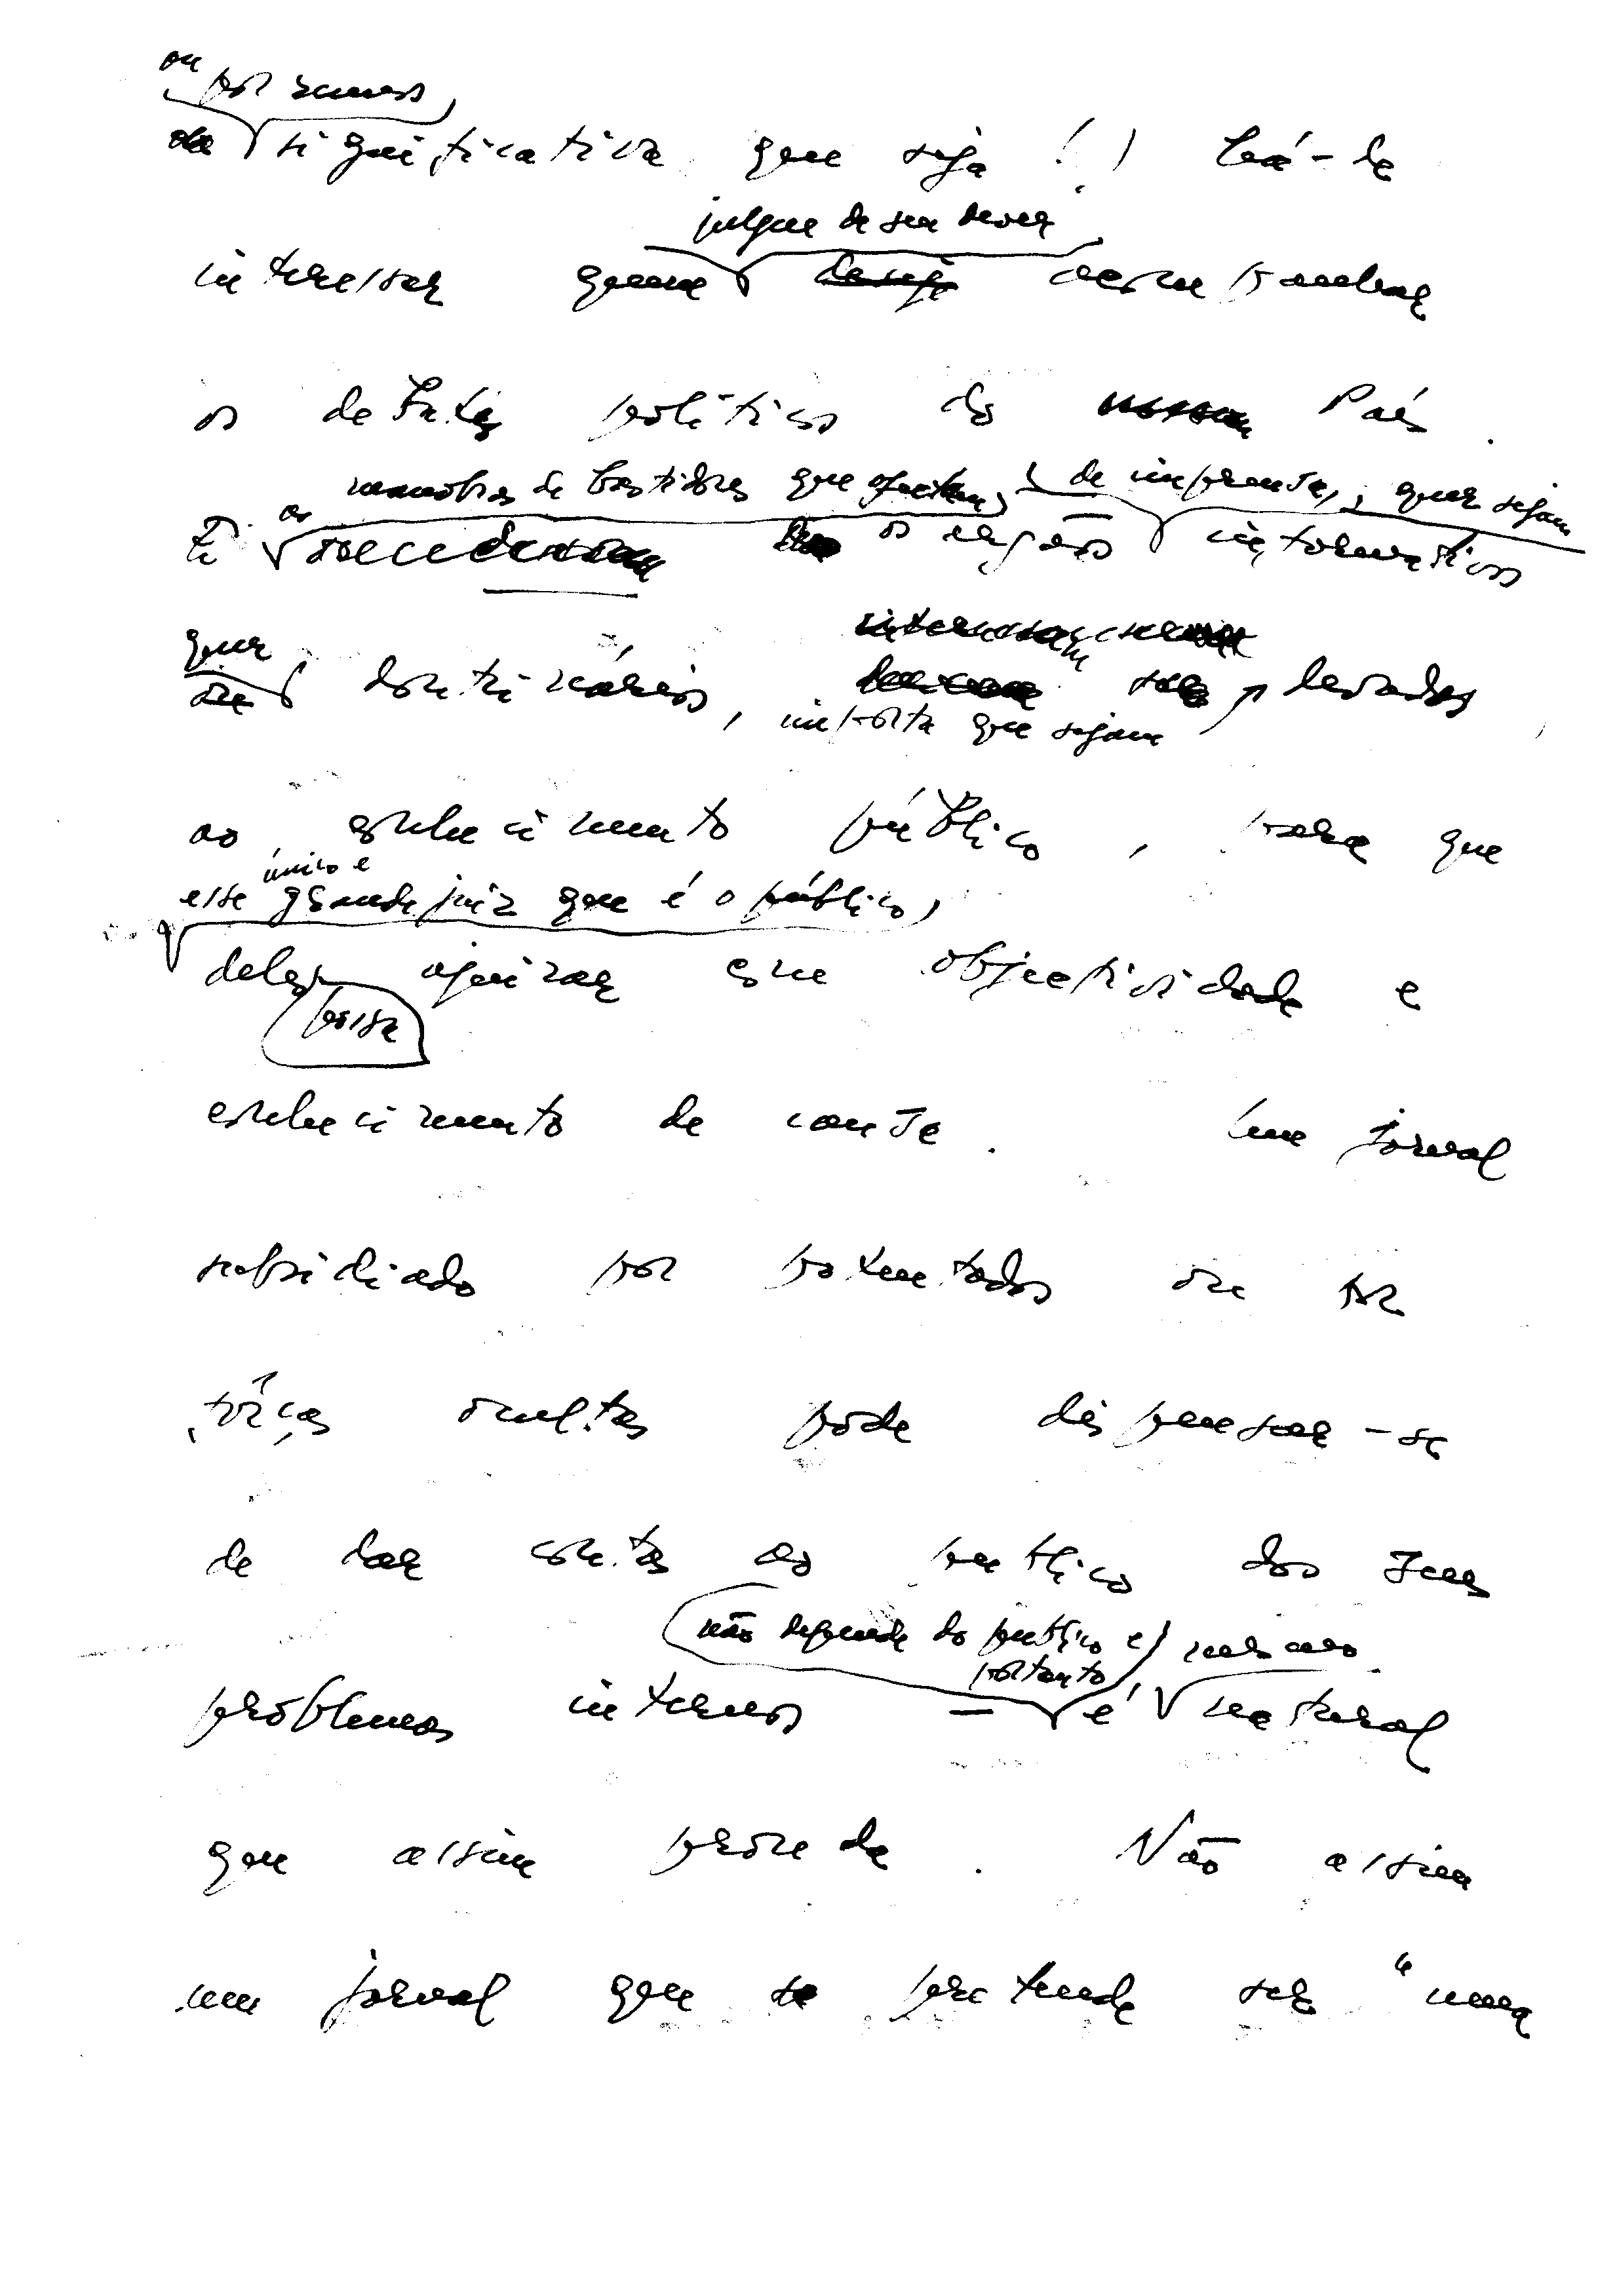 ou
por menos
significativa que seja!) há-de
julgue de seu dever
interessar quem deseje acompanhar
os debates políticos do nosso País.
manobras de bastidores que afectam, de imprensa, quer sejam
as
os órgãos informativos
quer
ou doutrinários, levados
importa que sejam
ao conhecimento público, para que
único e
esse grande juiz que é o público,
deles ajuizar com objectividade e
possa
conhecimento de causa. Um jornal
subsidiado por potentados ou por
fôrças ocultas pode dispensar-se
de dar contas ao público dos seus
não depende do público e mesmo
portanto
problemas internos — é natural
que assim proceda. Não assim
um jornal que se pretende ser "uma